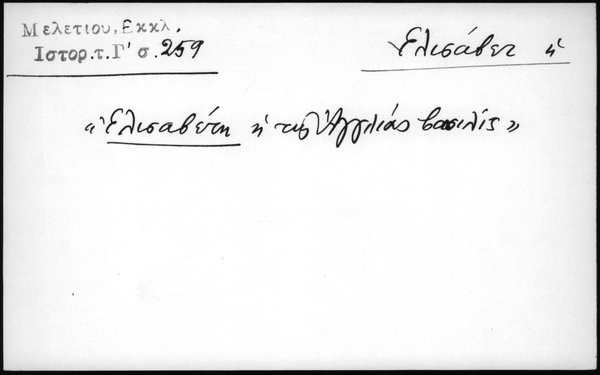 Μελετίου, Εκκλ.
Ιστορ.τ.Γ' σ. 259
Ἐλισάβετ ἡ
«Ἐλισαβέτη ἡ τῆς Ἀγγλίας βασιλὶς»